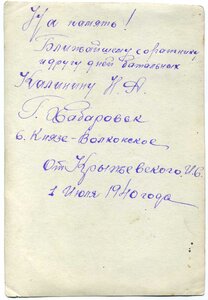 На память!
Ближайшему соратнику
и другу дней батальных
Калинину Н А.
Г. Хабаровск
б. Князе-Волконское
От Крыжевского, И.С.
1 Июля 1940 года